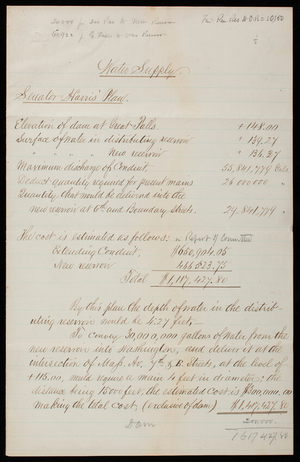 Water Supply.
Senator Harris' Plan.
Elevation of dam at Great Falls. + 148.00
Surface of water in distributing reservoir + 139.27
" " " " New reservoir + 136.27
Maximum discharge of Conduit. 55,841,779 Gals.
Deduct quantity required for present mains 26,000,000 "
Quantity that could be delivered into the
new reservoir at 6th and Boundary Streets. 29,841,779 "
The cost is estimated as follows: in Report of Committee
Extending Conduit, $650,904.05
New reservoir 466,523.75
Total $1,117,427.80
By this plan the depth of water in the distrib-
uting reservoir would be 4.27 feet.
To convey 30,000,000 gallons of water from the
new reservoir into Washington, and deliver it at the
intersection of Mass. Av. 9th & B. Streets, at the level of
+ 115.00, would require a main 4 feet in diameter; the
distance being 15000 feet, the estimated cost is $300,000.00
making the total cost (exclusive of dam) $1,417,427.80
Dam 200,000.
1617427.80